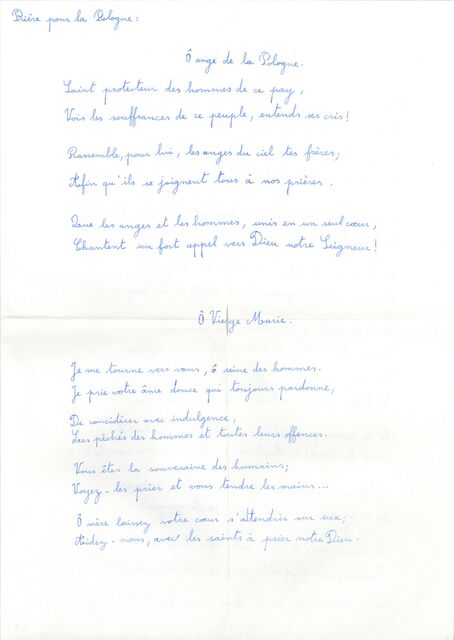 Prière pour la Pologne :
Ô ange de la Pologne.
Saint protecteur des hommes de ce pay,
Vois les souffrances de ce peuple, entends ses cris !
Rassemble, pour lui, les anges du ciel tes frères ;
Afin qu'ils se joignent tous à nos prières.
Que les anges et les hommes, unis en un seul cœur,
Chantent un fort appel vers Dieu notre Seigneur !
Ô Vierge Marie.
Je me tourne vers vous, ô reine des hommes.
Je prie votre âme douce qui toujours pardonne,
De concidérer avec indulgence,
Les péchés des hommes et toutes leurs offences.
Vous êtes la souveraine des humains ;
Voyez-les prier et vous tendre les mains...
Ô mère laissez votre cœur s'attendrir sur eux ;
Aidez-nous, avec les saints à prier notre Dieu.